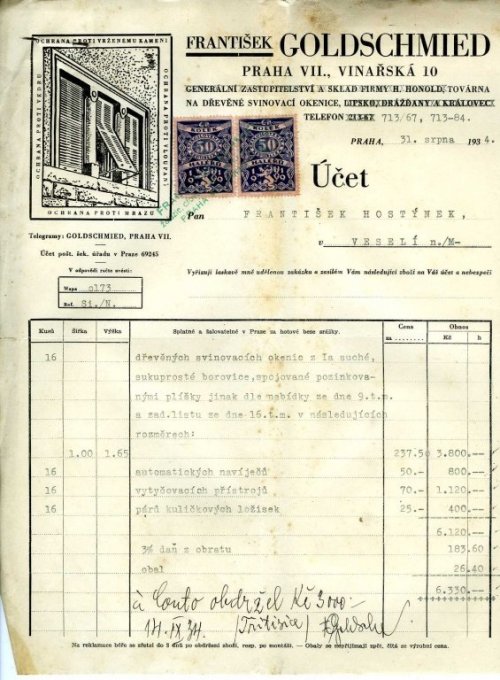 FRANTIŠEK GOLDSCHMIED
PRAHA VII., VINAŘSKÁ 10
GENERÁLNÍ ZASTUPITELSTVÍ A SKLAD FIRMY H. HONOLD, TOVÁRNA
NA DŘEVĚNÉ SVINOVACÍ OKENICE, LIPSKO, DRÁŽĎANY A KRÁLOVEC
TELEFON 213-67 713/67, 713-84.
PRAHA, 31. srpna 1934.
OCHRANA PROTI VRŽENÉMU KAMENÍ
OCHRANA PROTI VEDRU
OCHRANA PROTI VLOUPÁNÍ
OCHRANA PROTI MRAZU
KOLEK
50
HALÉŘŮ
KOLEK
50
HALÉŘŮ
Účet
Pan FRANTIŠEK HOSTÝNEK,
v VESELÍ n./M-
Telegramy: GOLDSCHMIED, PRAHA VII.
Účet pošt. šek. úřadu v Praze 69245
V odpovědi račte uvésti:
Vyřizuji laskavě mně udělenou zakázku a zesílám Vám následující zboží na Váš účet a nebezpečí
Mapa o173
Ref. Si./N.
Kusů Šířka Výška Splatné a žalovatelné v Praze za hotové beze srážky. Cena za Obnos Kč h
16 dřevěných svinovacích okenic z Ia suché,
sukuprosté borovice, spojované pozinkova-
nými plíšky jinak dle nabídky ze dne 9.t.m.
a zad.listu ze dne 16.t.m. v následujících
rozměrech:
1.00 1.65 237.50 3.800.--
16 automatických navíječů 50.- 800.--
16 vytyčovacích přístrojů 70.- 1.120.--
16 párů kuličkových ložisek 25.- 400.--
6.120.--
3% daň z obratu 183.60
obal 26.40
6.330.--
à Conto obdržel Kč 3000.-
14. IX. 34.
Na reklamace béře se zřetel do 3 dnů po obdržení zboží, resp. po montáži. — Obaly se nepřijímají zpět, čítá se výrobní cena.